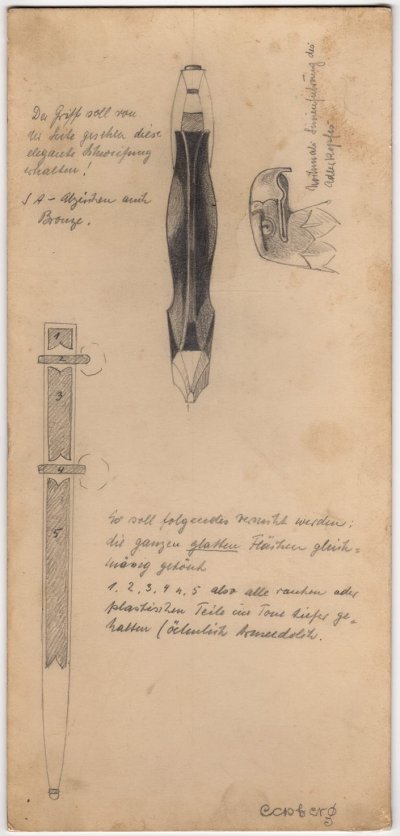 Der Griff soll von
der Seite gesehen diese
elegante Schweifung
erhalten!
SA-Abzeichen auch
Bronze.
Nochmals Linienführung des
Adlerkopfes
1
2
3
4
5
Es soll folgendes versucht werden:
die ganzen glatten Flächen gleich=
mässig getönt
1, 2, 3, 4 u. 5 also alle rauhen oder
plastischen Teile im Tone tiefer ge=
halten (ähnlich Armeedolch.